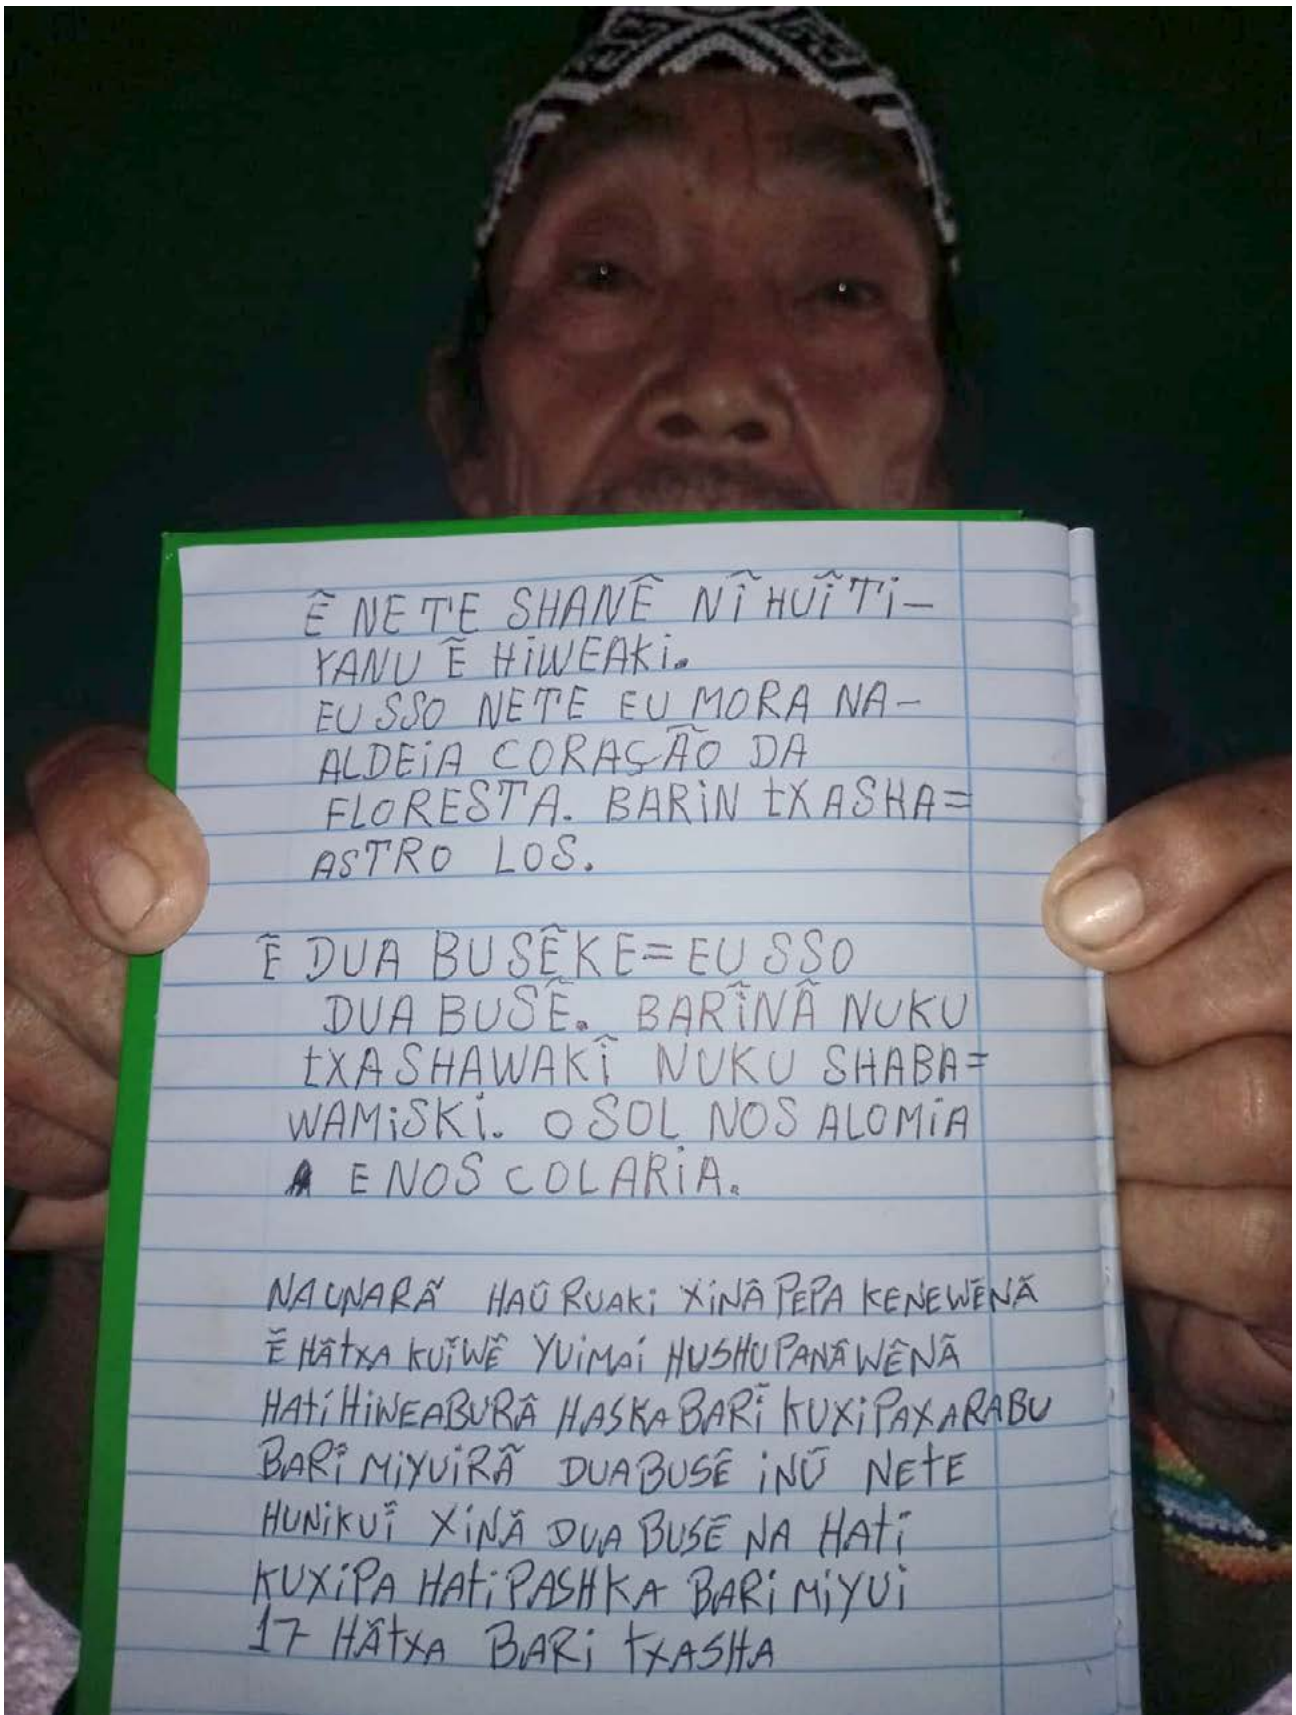 Ẽ NETE SHANẼ NĨ HUĨ TI–
YANU Ẽ HIWEAKI.
EU SSO NETE EU MORA NA–
ALDEIA CORAÇÃO DA
FLORESTA. BARIN TXASHA=
ASTRO LOS.
Ẽ DUA BUSẼKE=EU SSO
DUA BUSẼ. BARĨNÃ NUKU
TXASHAWAKĨ NUKU SHABA=
WAMISKI. O SOL NOS ALOMIA
E NOS COLARIA.
NAUNARÃ HAŨ RUAKI XINÃ PEPA KENEWẼNÃ
Ẽ HÃTXA KUĨWẼ YUIMAI HUSHUPANÃWẼNÃ
HATI HIWEABURÃ HASKA BARĨ KUXIPAXARABU
BARĨ MIYUIRÃ DUABUSẼ INŨ NETE
HUNIKUĨ XINÃ DUA BUSẼ NA HATI
KUXIPA HATIPASHKA BARI MIYUI
17 HÃTXA BARI TXASHA